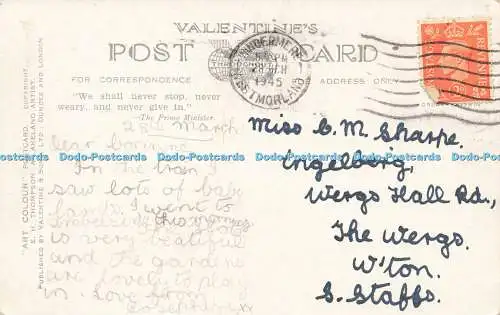 VALENTINE'S
POST CARD
FOR CORRESPONDENCE
ADDRESS ONLY
"We shall never stop, never
weary, and never give in."
—The Prime Minister
WINDERMERE
1945
WESTMORLAND
28th March
Dear
In the train I
saw lots of baby
lambs. I went to
this morning
is very beautiful
and the gardens
are lovely to play
in. Love from
Josephine
Miss C. M. Sharpe.
Ingelberg,
Wergs Hall Rd.,
The Wergs.
W'ton.
S. Staffs.
"ART COLOUR" POSTCARD. COPYRIGHT.
E. H. THOMPSON. LAKELAND ARTIST.
PUBLISHED BY VALENTINE & SONS, LTD., DUNDEE AND LONDON
Dodo-Postcards.com Dodo-Postcards.com Dodo-Postcards.com Dodo-Postcards.com